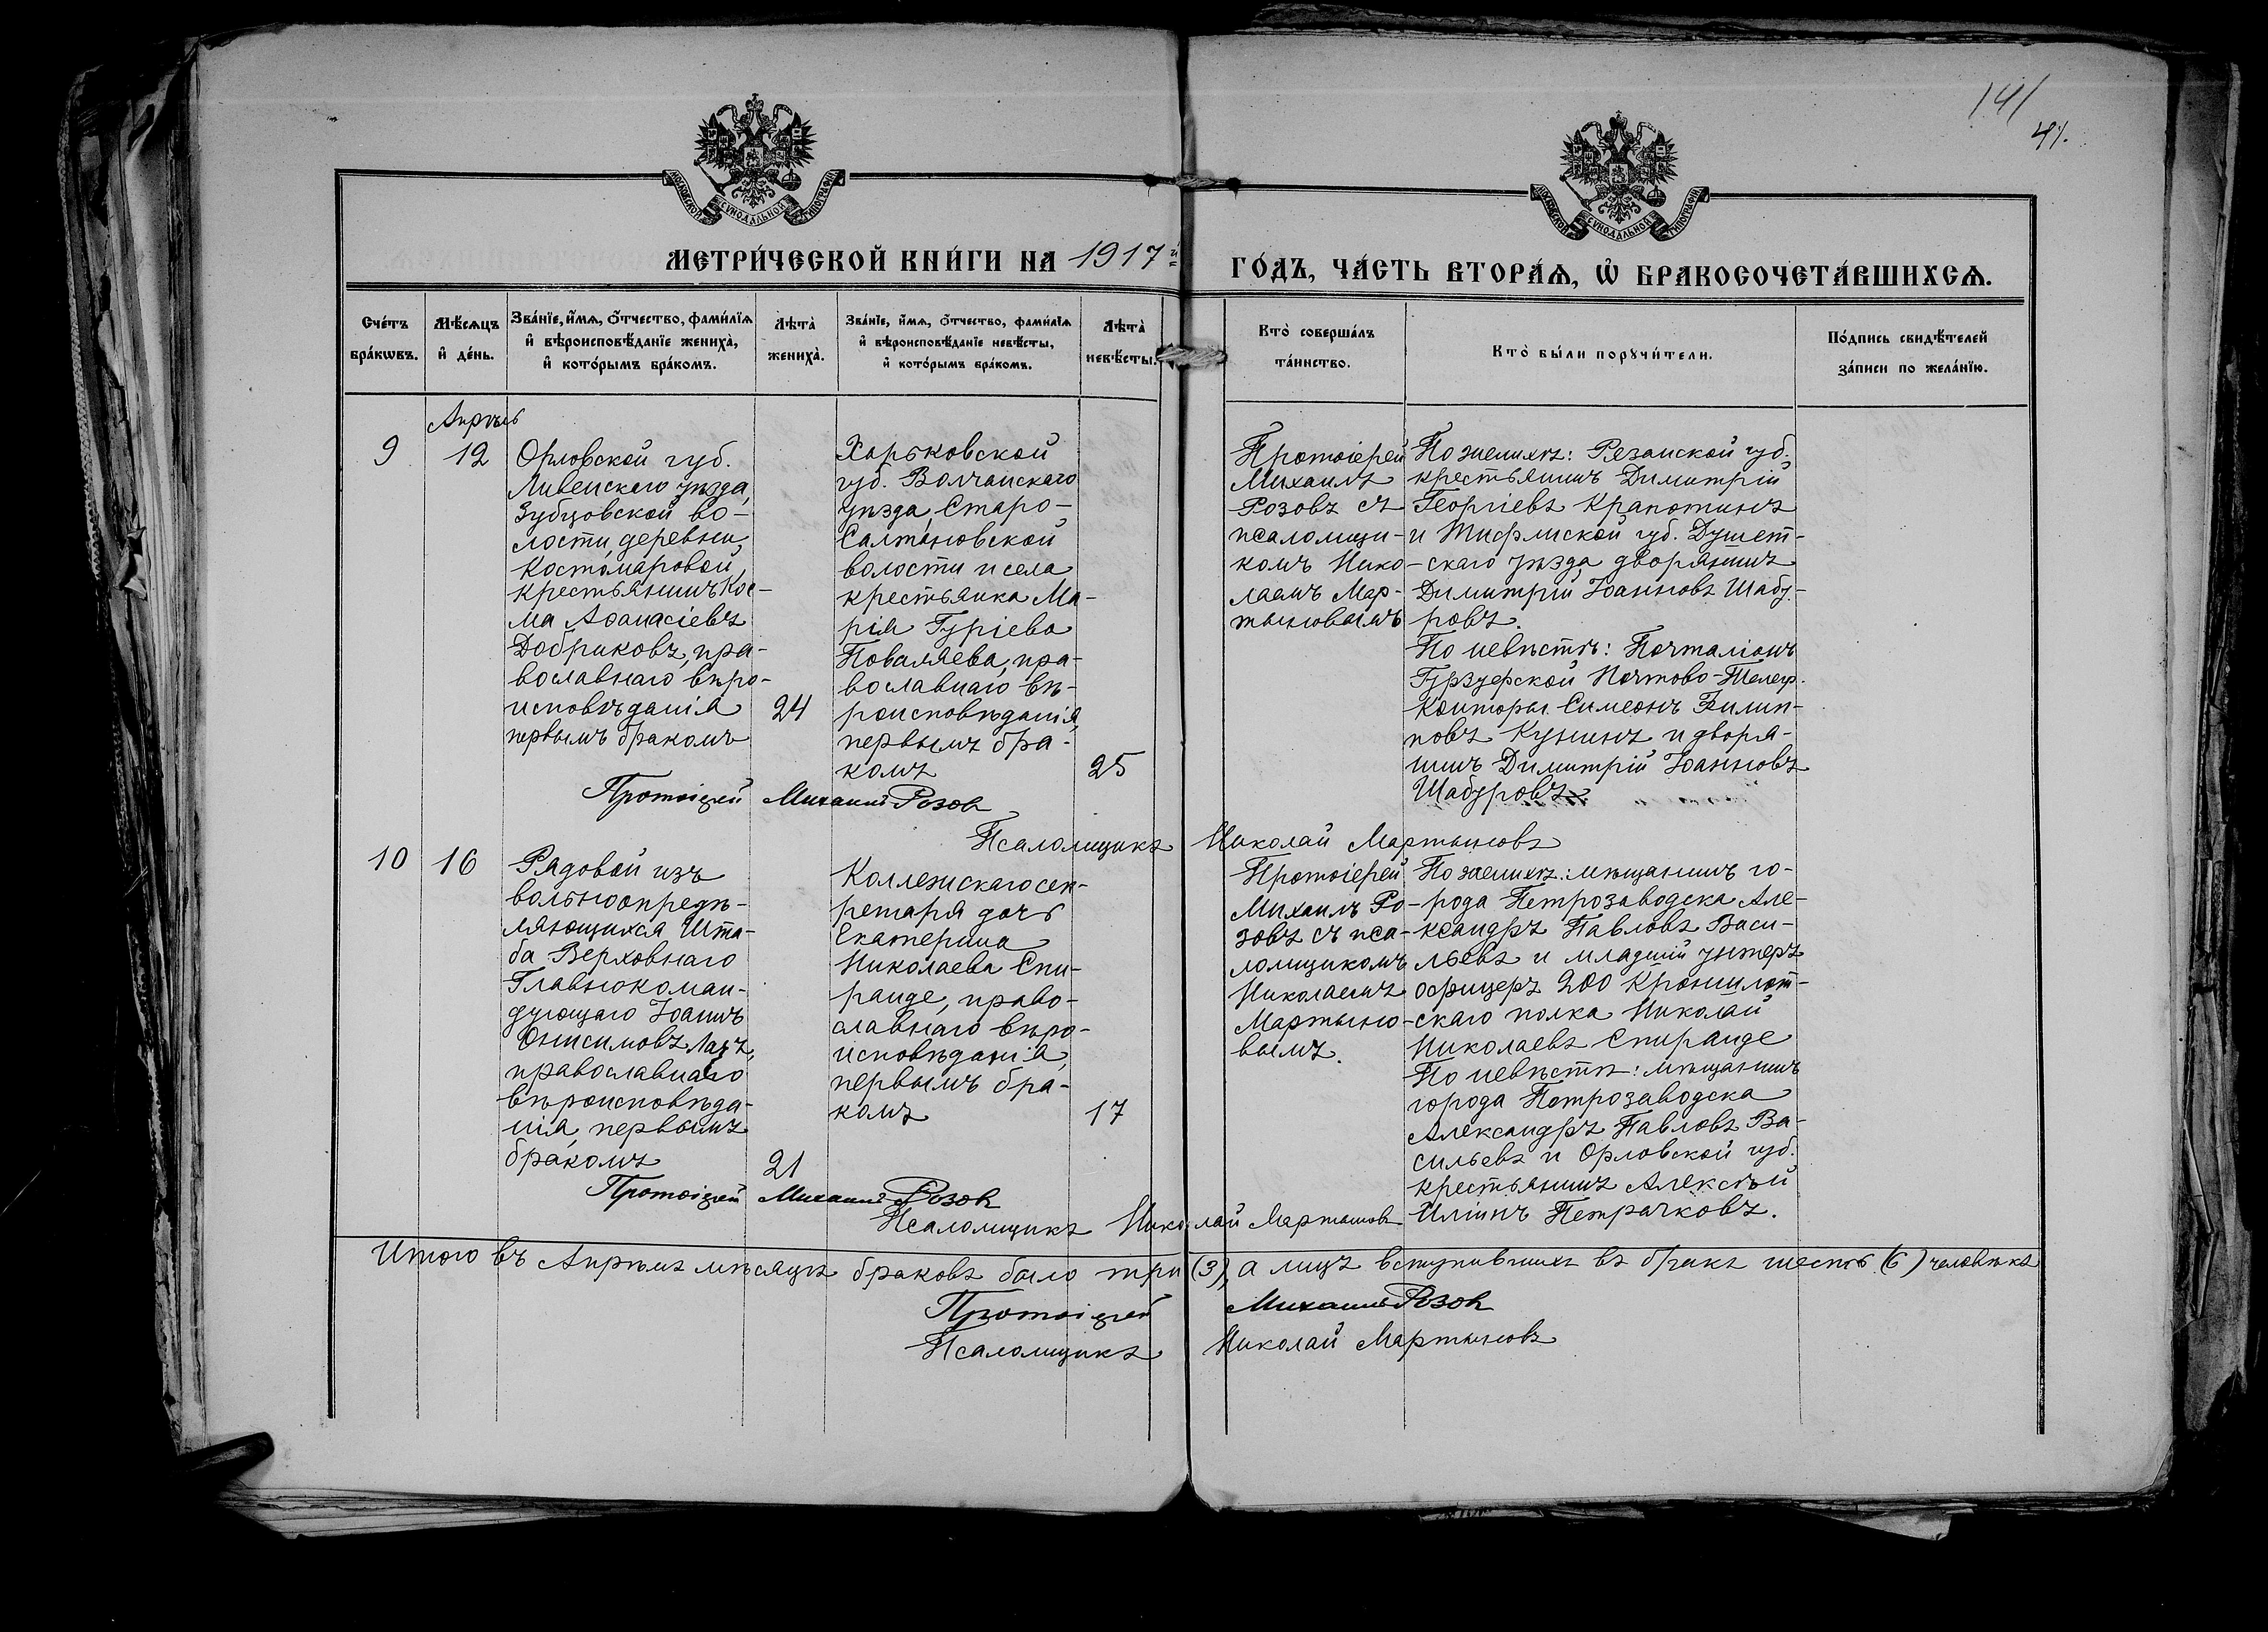 141
41.
МОСКОВСКОЙ СѴНОДАЛЬНОЙ ТИПОГРАФІИ
МОСКОВСКОЙ СѴНОДАЛЬНОЙ ТИПОГРАФІИ
МЕТРИ́ЧЕСКОЙ КНИ́ГИ НА 1917й
ГО́ДЪ, ЧА́СТЬ ВТОРА́Ѧ, Ѡ҆ БРАКОСОЧЕТА́ВШИХСѦ.
Сче́тъ
бра́кѡвъ.
Мѣ́сѧцъ
и҆ де́нь.
Зва́нїе, и҆́мѧ, о҆́тчество, фами́лїѧ
и҆ вѣроисповѣ́данїе жениха̀,
и҆ кото́рымъ бра́комъ.
Лѣта̀
жениха̀.
Зва́нїе, и҆́мѧ, о҆́тчество, фами́лїѧ
и҆ вѣроисповѣ́данїе невѣ́сты,
и҆ кото́рымъ бра́комъ.
Лѣта̀
невѣ́сты.
Кто̀ соверша́лъ
та́инство.
Кто̀ бы́ли порꙋчи́тели.
По́дпись свидѣ́телей
за́писи по жела́нїю.
9
Апрѣль
12
Орловской губ.
Ливенскаго уѣзда,
Зубцовской во-
лости, деревни,
Костомаровой,
крестьянинъ Кос-
ма Аѳанасіевъ
Добриковъ, пра-
вославнаго вѣро-
исповѣданія
первымъ бракомъ
24
Харьковской
губ. Волчанскаго
уѣзда, Старо-
Салтановской
волости и села
крестьянка Ма-
рія Гуріева
Поваляева, пра-
вославнаго вѣ-
роисповѣданія,
первымъ бра-
комъ
25
Протоіерей
Михаилъ
Розовъ съ
псаломщи-
комъ Нико-
лаемъ Мар-
тыновымъ
По женихѣ: Резанской губ.
крестьянинъ Димитрій
Георгіевъ Крапотинъ
и Тифлиской губ. Душет-
скаго уѣзда дворянинъ
Димитрій Іоанновъ Шабу-
ровъ.
По невѣстѣ: Почталіонъ
Гурзуфской Почтово-Телегр.
Конторы Симеонъ Филип-
повъ Кунинъ и дворя-
нинъ Димитрій Іоанновъ
Шабуровъ
Протоіерей Михаилъ Розовъ
Псаломщикъ Николай Мартыновъ
10
16
Рядовой изъ
вольноопредѣ-
ляющихся Шта-
ба Верховнаго
Главнокоман-
дующаго Іоаннъ
Онисимовъ Лазъ,
православнаго
вѣроисповѣда-
нія, первымъ
бракомъ
21
Коллежскаго сек-
ретаря дочь
Екатерина
Николаева Спи-
ранде, право-
славнаго вѣро-
исповѣданія,
первымъ бра-
комъ
17
Протоіерей
Михаилъ Ро-
зовъ съ пса-
ломщикомъ
Николаемъ
Мартыно-
вымъ.
По женихѣ: мѣщанинъ го-
рода Петрозаводска Але-
ксандръ Павловъ Васи-
льевъ и младшій унтеръ
офицеръ 200 Кроншлот-
скаго полка Николай
Николаевъ Спиранде
По невѣстѣ: мѣщанинъ
города Петрозаводска
Александръ Павловъ Ва-
сильевъ и Орловской губ.
крестьянинъ Алексѣй
Иліинъ Петрачковъ.
Протоіерей Михаилъ Розовъ
Псаломщикъ Николай Мартыновъ
Итого въ Апрѣлѣ мѣсяцѣ браковъ было три (3), а лицъ вступившихъ въ бракъ шесть (6) человѣкъ
Протоіерей Михаилъ Розовъ
Псаломщикъ Николай Мартыновъ